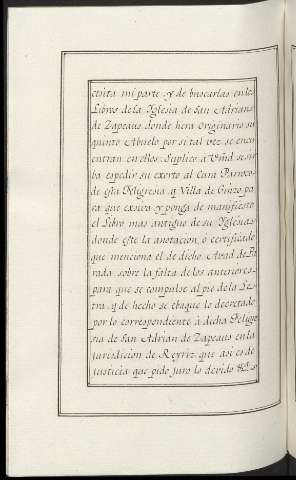 cesita mi parte, y de buscarlas en los
Libros de la Yglesia de San Adrian
de Zapeaus donde hera originario su
quinto Abuelo por si tal vez se encu
entran en ellos: Suplico a Vmd. se sir
ba espedir su exorto al Cura Parroco
de esta Feligresia y Villa de Ginzo pa
ra que exsiva y ponga de manifiesto
el Libro mas antiguo de su Yglesia
donde este la anotacion, ò certificado
que menciona el de dicho Avad de Pa
rada, sobre la falta de los anteriores
para que se compulse al pie de la Le
tra, y de hecho se ebaque lo decretado
por lo correspondiente à dicha Feligre
sia de San Adrian de Zapeaus en la
Jurisdicion de Reyriz que asi es de
justicia que pido juro lo devido